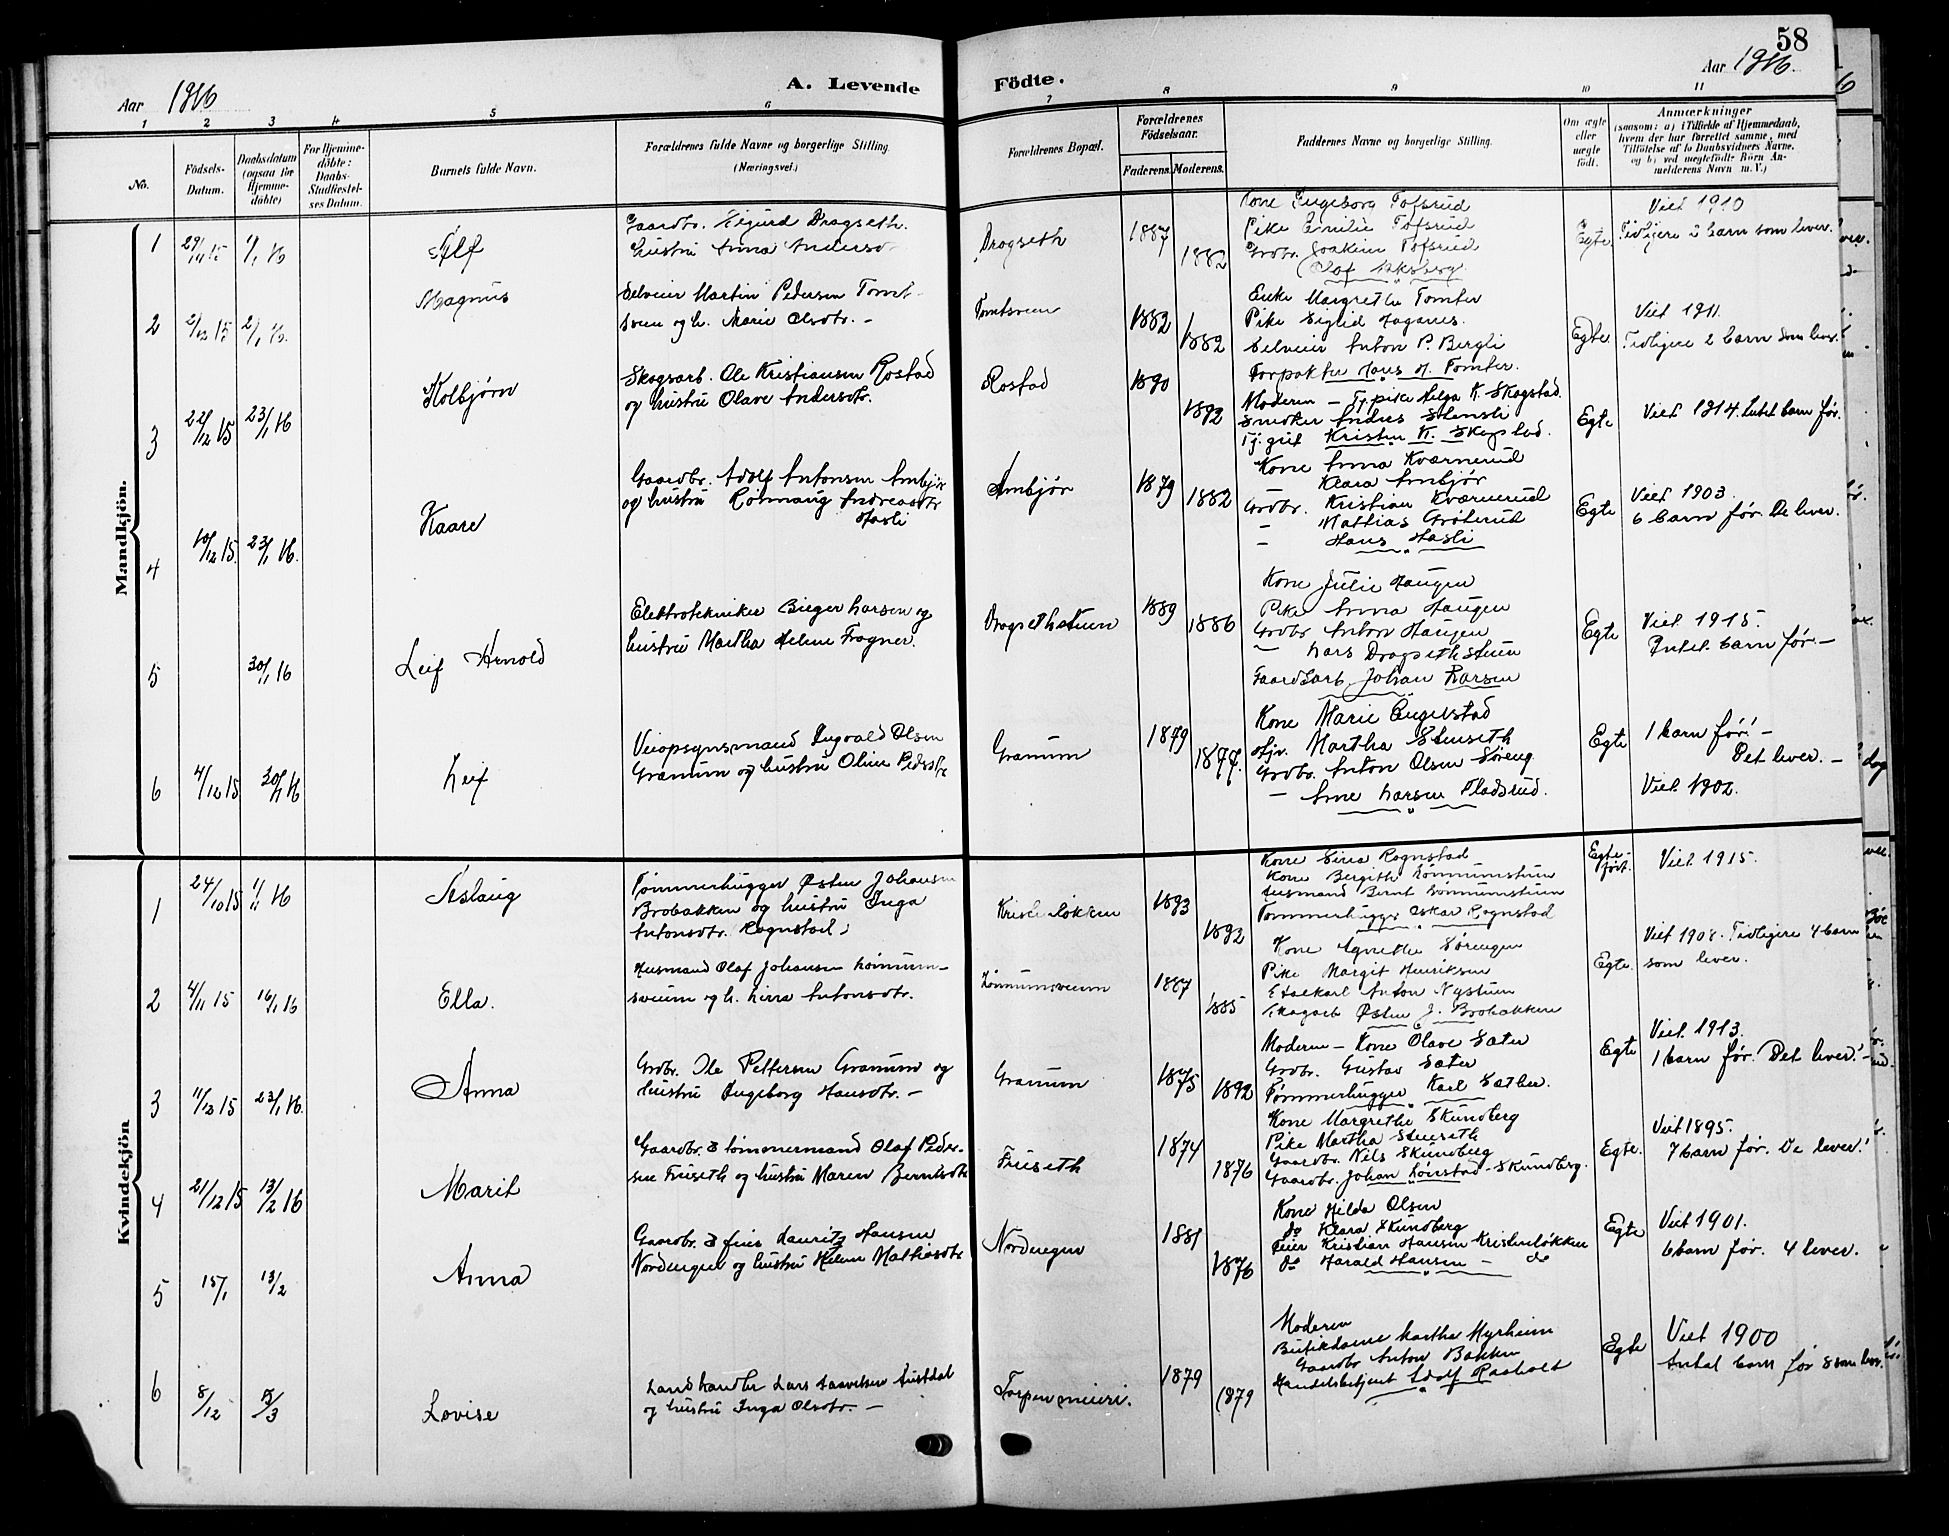 58
Aar 1916
A. Levende
Födte.
Aar 1916.
1 2 3 4 5 6 7 8 9 10 11
No.
Födsels-
Datum.
Daabsdatum
(ogsaa for
Hjemme-
döbte)
For Hjemme-
döbte:
Daabs-
Stadfæstel-
ses Datum.
Barnets fulde Navn.
Forældrenes fulde Navne og borgerlige Stilling.
(Næringsvei.)
Forældrenes Bopæl.
Forældrenes
Födselsaar.
Faderens. Moderens.
Faddernes Navne og borgerlige Stilling.
Om ægte
eller
uægte
födt.
Anmærkninger
(saasom: a) i Tilfælde af Hjemmedaab,
hvem der har forrettet samme, med
Tilföielse af to Daabsvidners Navne,
og b) ved uægtefödte Börn An-
melderens Navn m. V.)
Mandkjön.
1
1/1 16
Alf
Gaardbr. Sigurd Dragseth.
Hustru Anna Andersd
Dragseth
1887
1882
Kone Ingeborg Tofsrud
Pike Emilie Tofsrud
Grdbr. Joakim Tofsrud
Egte
Viet 1910
Tidligere 2 barn som lever.
2
2/12 15
2/1 16.
Magnus
Selveier Martin Pedersen Tomt-
sveen og h. Marie Olsdtr. -
Tomtsveen
1882
1882
Enke Margrethe Tomter
Pike Siglid Haganes.
Selveier Anton P. Bergli
Forpakter Hans H. Tomter.
Egte
Viet 1911.
Tidligere 2 barn som lever.
3
22/12 15
23/1 16
Kolbjørn
Skogsarb. Ole Kristiansen Rostad
og hustru Olave Andersdtr.
Rostad
1890
1892
Moderen - Tj.pike Helga K. Skogstad.
Smeker Anders Stensli
Tj.gut Kristen K. Skogstad.
Egte
Viet 1914. Intet barn før.
4
10/12 15.
23/1 16.
Kaare
Gaardbr. Adolf Antonsen Ambjør
og hustru Rønnaug Andreasdtr
Hasli
Ambjør
1879
1882
Kone Anna Kværnerud
Klara Ambjør
Grdbr. Kristian Kværnerud
- Mathias Grøterud
- Hans Hasli
Egte
Viet 1903.
6 barn før. De lever.
5
30/1 16
Leif Arnold
Elektrotekniker Birger Larsen og
hustru Martha Helene Fragner.
Dragsethstuen
1889
1886
Kone Julie Haugen
Pike Anna Haugen
Grdbr Anton Haugen
- Lars Dragsethstuen
Gaardsarb. Johan Larsen
Egte
Viet 1915.
Intet barn før. -
6
4/12 15
30/1 16
Leif
Veiopsynsmand Ingvald Olsen
Granum og hustru Oline Pedersdtr
Granum
1879
1877.
Kone Marie Engelstad
Hjv. Martha Stenseth
Grdbr. Anton Olsen Søreng
- Arne Larsen Fladsrud.
Egte
1 barn før! -
Det lever. -
Viet 1902.
Kvindekjön
1
24/10 15
1/1 16
Aslaug
Tømmerhugger Østen Johansen
Brobakken og hustru Inga
Antonsdtr. Rognstad.
1893
1892
Kone Sina Rognstad
Kone Bergithe Lønnumstuen
Husmand Bernt Lønnumstuen
Tømmerhugger Oskar Rognstad
Egte-
født.
Viet 1915.
2
4/11 15
16/1 16
Ella.
Husmand Olaf Johansen Lønnum-
sveen og h. Lina Antonsdtr.
Lønnumsveen
1887
1885
Kone Agnethe Sørengen
Pike Margit Henriksen
Staldkarl Anton Nystuen
Skogarb Østen J. Brobakken
Egte.
Viet 1908. Tidligere 4 barn
som lever.
3
11/12 15
23/1 16.
Anna
Grdbr. Ole Pettersen Granum og
Hustru Ingeborg Hansdtr. -
Granum
1875
1892
Moderen - Kone Olave Sæter
Grdbr. Gustav Sæter
Tømmerhugger Karl Sæther.
Egte
Viet 1913.
1 barn før. Det lever! -
4
21/12 15
13/2 16
Marit
Gaardbr. & tømmermand Olaf Peder-
sen Friseth og hustru Maren Berntsdtr
Friseth
1874
1876
Kone Margrethe Skundberg
Pike Martha Stenseth
Gaardbr. Nils Skundberg
Gaardbr. Johan Lønstad-Skundberg.
Egte.
Viet 1895.
7 barn før. De lever!
5
15/1
13/2
Anna
Gaardbr. & feier Lauritz Hansen
Nordengen og hustru Helene Mathiasdtr
Nordengen
1881
1876
Kone Hilda Olsen
do Klara Skundberg
Feier Kristian Hansen Kristenløkken
do Harald Hansen - do
Egte
Viet 1901.
6 barn før. 4 lever.
6
8/12
5/3
Lovise
Landhandler Lars Laavelsen Austdal
og hustru Inga Olsdtr. -
Torpen meieri.
1879
1879
Moderen
Butikdame Martha Myrheim
Gaardbr Anton Bakken
Handelsbetjent Adolf Raaholt
Egte
Viet 1900
Antal barn før 8 som lever.